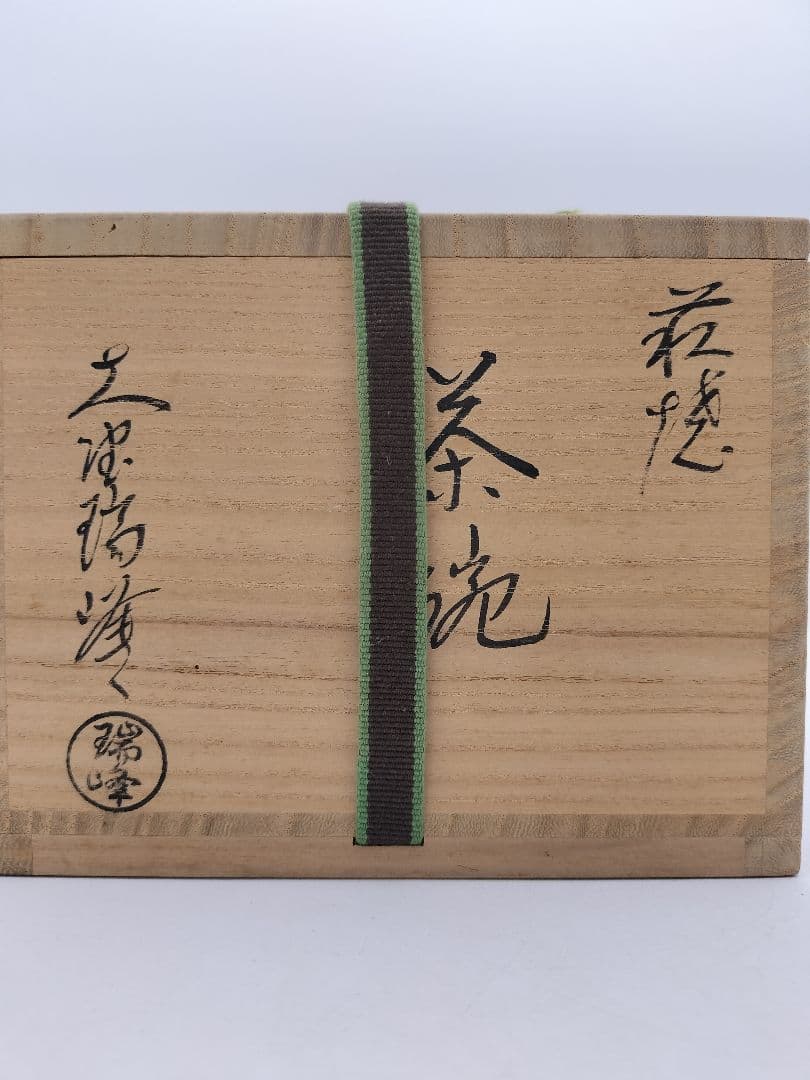 萩焼
茶碗
大塚瑞峰
瑞峰